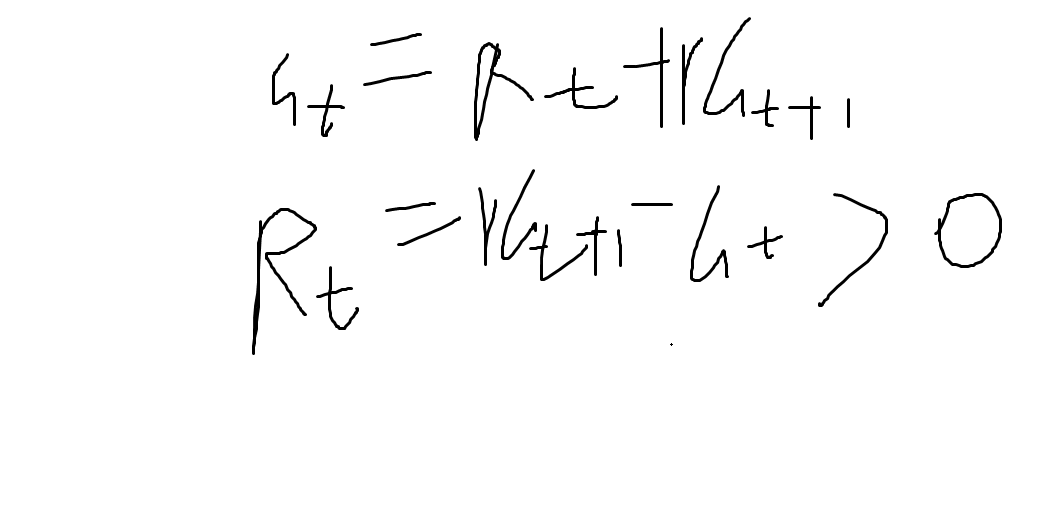 G_t = R_t + γG_{t+1}
R_t = γG_{t+1} - G_t > 0